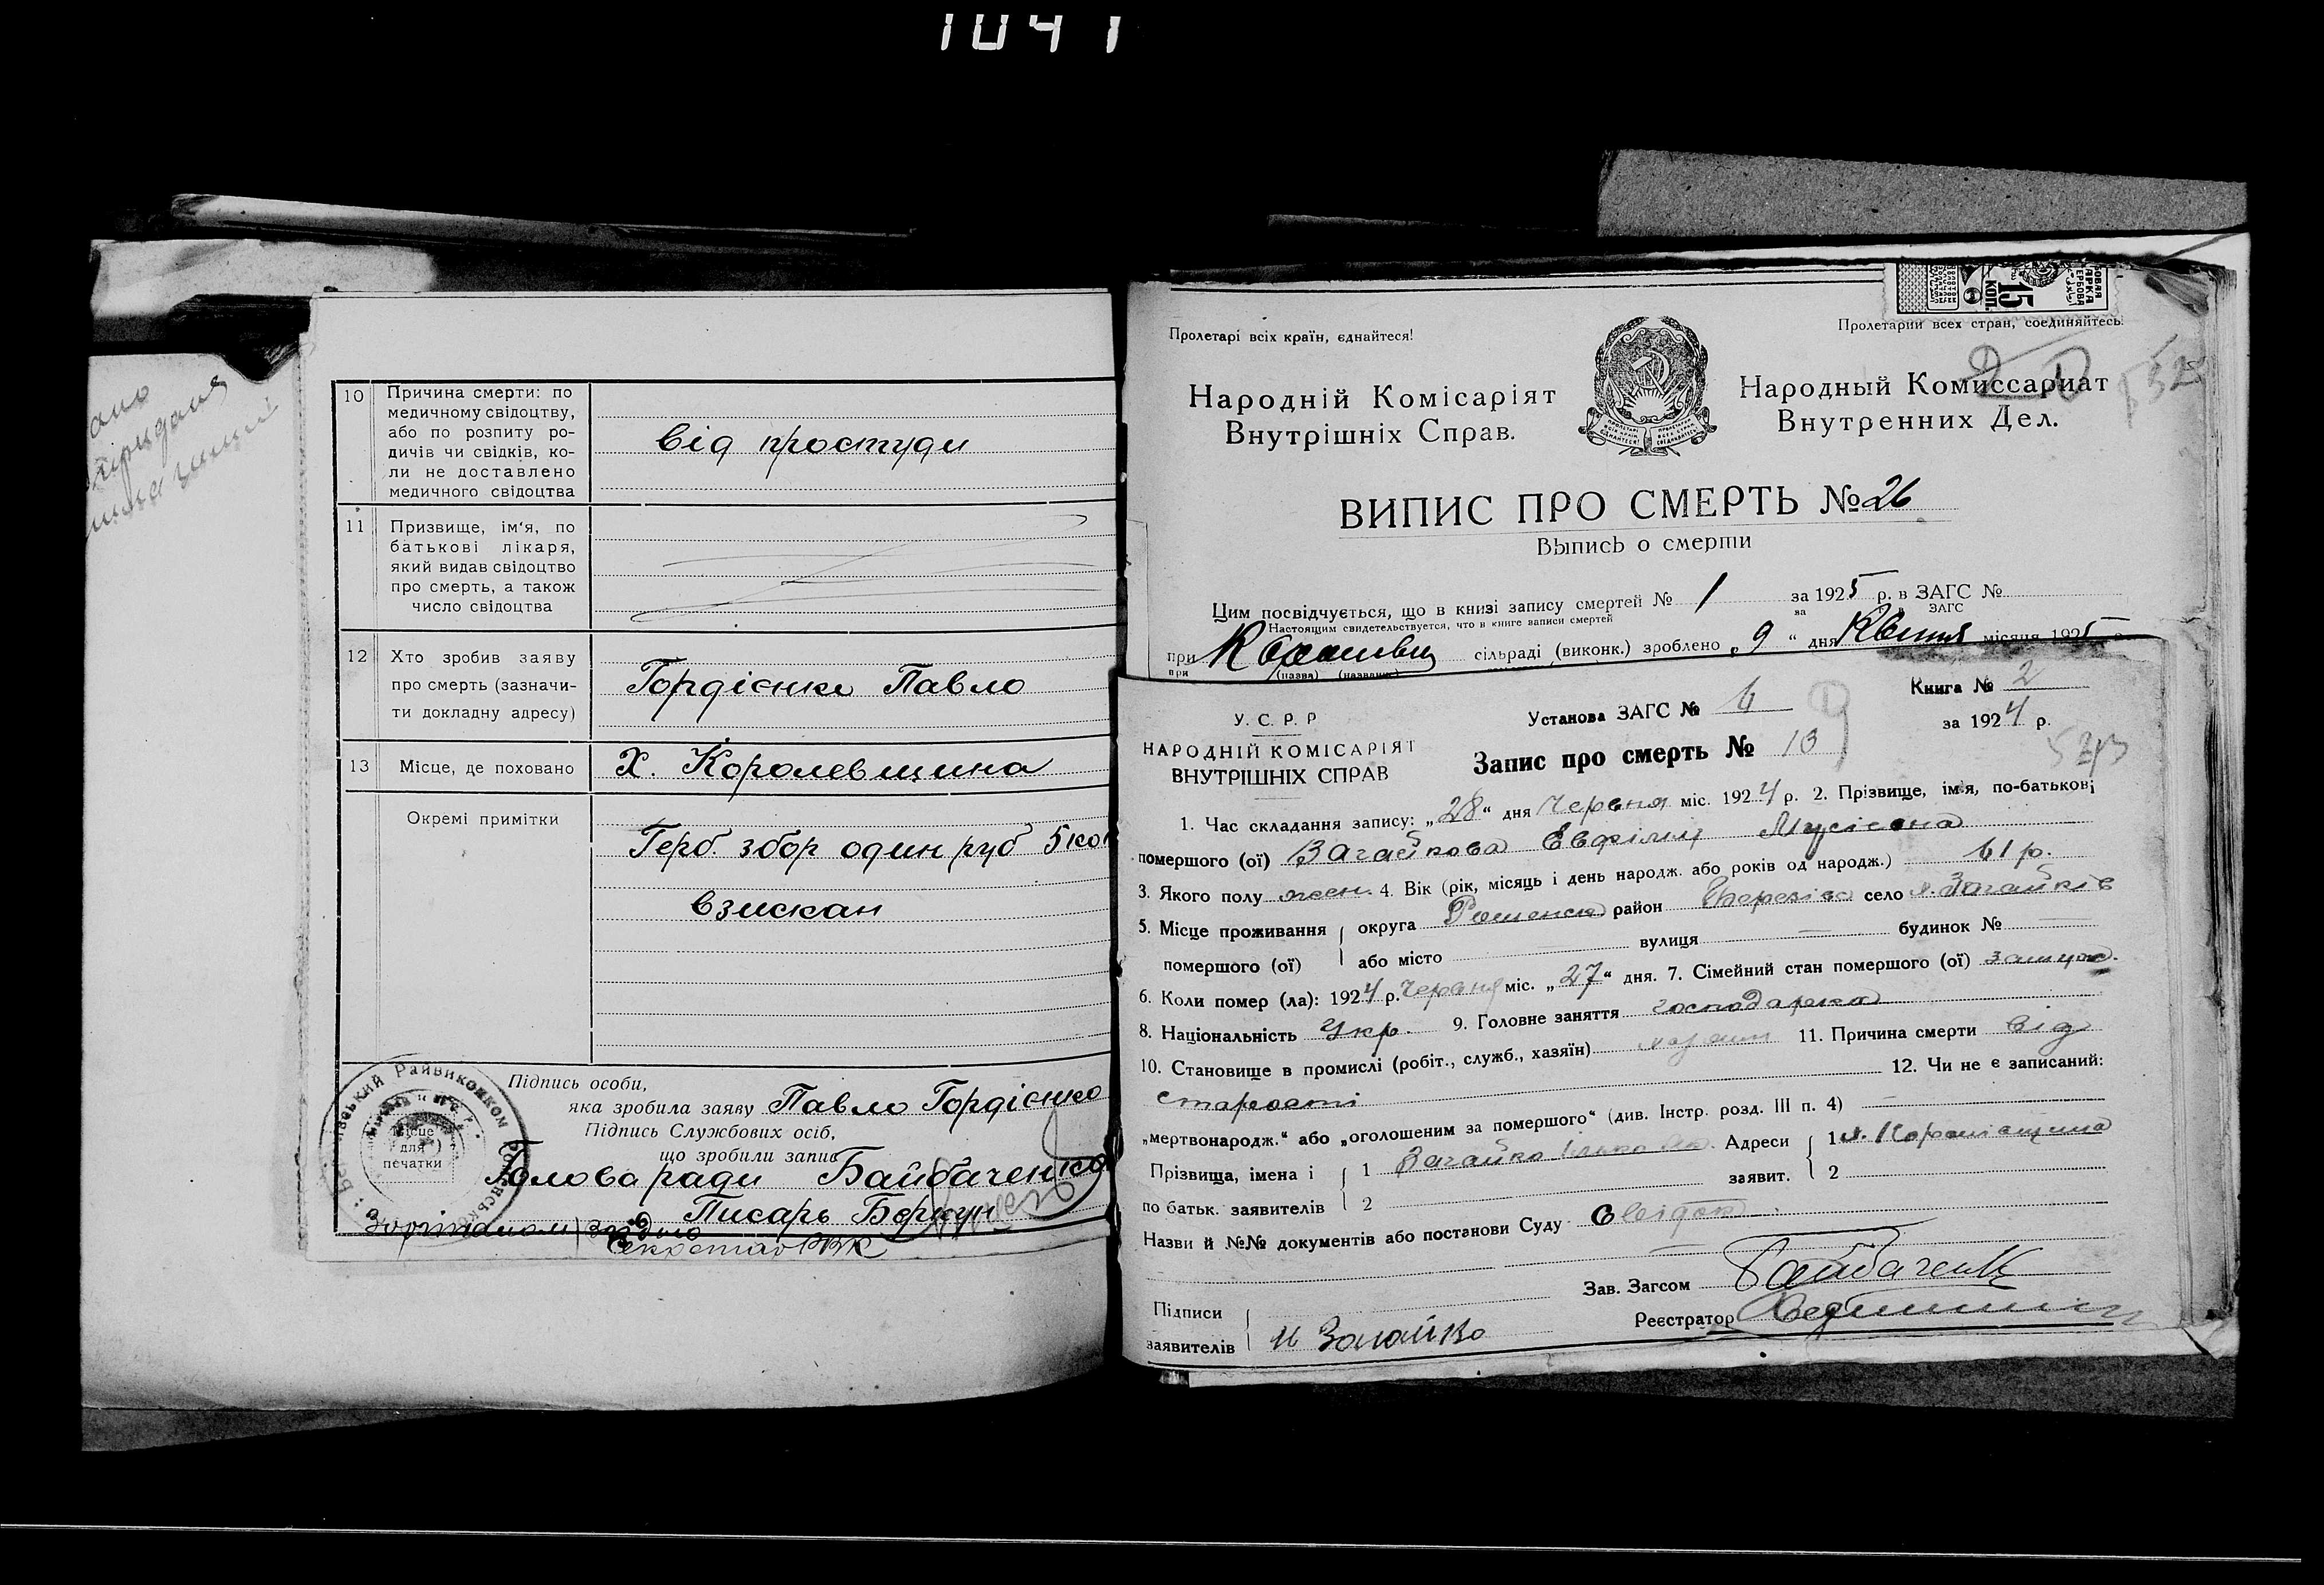 1041
10 Причина смерти: по
медичному свідоцтву,
або по розпиту ро-
дичів чи свідків, ко-
ли не доставлено
медичного свідоцтва
від простуди
11 Призвище, ім'я, по
батькові лікаря,
який видав свідоцтво
про смерть, а також
число свідоцтва
12 Хто зробив заяву
про смерть (зазначи-
ти докладну адресу)
Гордієнко Павло
13 Місце, де поховано
Х. Королевщина
Окремі примітки
Герб. збор один руб 5 коп
взискан
Підпись особи,
яка зробила заяву Павло Гордієнко
Підпись Службових осіб,
що зробили запис
Голова ради Байбаченко
Писарь Боркун
Місце
для
печатки
З оригіналом згідно
Секретар РВК
15 КОП.
Пролетарі всіх країн, єднайтеся!
Пролетарии всех стран, соединяйтесь!
Народній Комісаріят
Внутрішніх Справ.
Народный Комиссариат
Внутренних Дел.
ВИПИС ПРО СМЕРТЬ № 26
Выпись о смерти
Цим посвідчується, що в книзі запису смертей № 1 за 1925 р. в ЗАГС №
Настоящим свидетельствуется, что в книге записи смертей за ЗАГС
при сільраді (виконк.) зроблено „ 9 “ дня Квітня місяця 1925 р.
при (назва) (название)
У. С. Р. Р
НАРОДНІЙ КОМІСАРІЯТ
ВНУТРІШНІХ СПРАВ
Установа ЗАГС №
Книга № 2
за 1924 р.
Запис про смерть № 13
1. Час складання запису: „28“ дня Червня міс. 1924 р. 2. Прізвище, ім'я, по-батькові
помершого (ої) Загайкова Евфімія Мусієвна
3. Якого полу жен. 4. Вік (рік, місяць і день народж. або років од народж.) 61 р.
5. Місце проживання округа Роменска район Березівс село х. Загайків
помершого (ої) або місто вулиця будинок №
6. Коли помер (ла): 1924 р. Червня міс. „27“ дня. 7. Сімейний стан помершого (ої) замужн.
8. Національність Укр. 9. Головне заняття господарка
10. Становище в промислі (робіт., служб., хазяїн) 11. Причина смерти від
старости 12. Чи не є записаний:
„мертвонародж.“ або „оголошеним за помершого“ (див. Інстр. розд. III п. 4)
Прізвища, імена і 1 Загайко Адреси 1 х.
по батьк. заявителів 2 заявит. 2
Назви й №№ документів або постанови Суду Свідок
Зав. Загсом Байбаченко
Підписи
заявителів И Загайко
Реєстратор